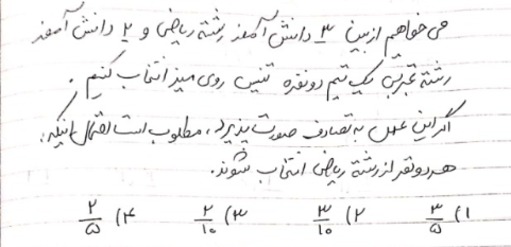 می خواهیم از بین ۳ دانش آموز رشته ریاضی و ۲ دانش آموز
رشته تجربی یک تیم دونفره تنیس روی میز انتخاب کنیم.
اگر این عمل به تصادف صورت پذیرد، مطلوب است احتمال اینکه:
هر دو نفر از رشته ریاضی انتخاب شوند.
۱) ۳/۵ ۲) ۳/۱۰ ۳) ۲/۱۰ ۴) ۲/۵